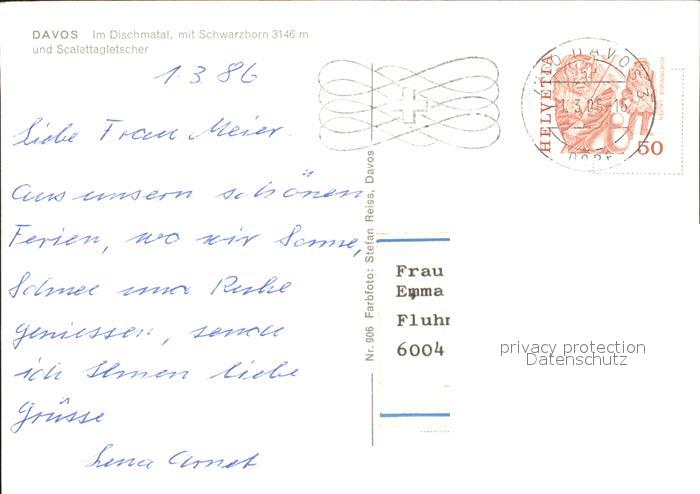 DAVOS Im Dischmatal, mit Schwarzhorn 3146 m
und Scalettagletscher
1.3.86
Liebe Frau Meier.
Aus unsern schönen
Ferien, wo wir Sonne,
Schnee und Ruhe
geniessen, sende
ich Ihnen liebe
Grüsse
Lena Arnet
Nr. 906 Farbfoto: Stefan Reiss, Davos
DAVOS 3
DORF
HELVETIA
50
Frau
Emma
Fluhm
6004
privacy protection
Datenschutz